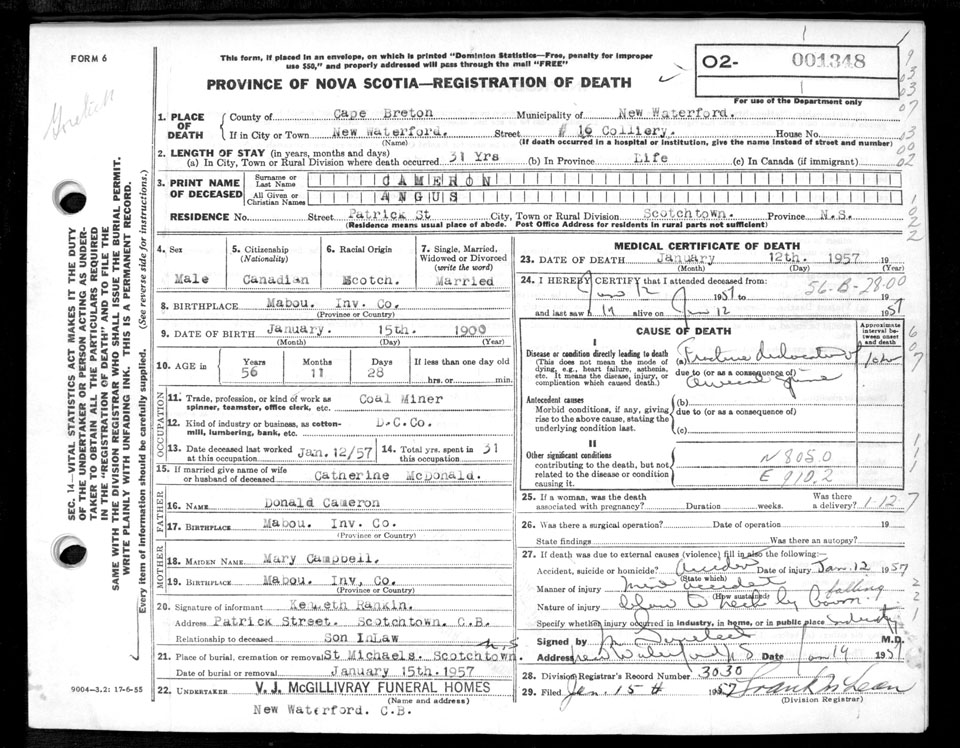 FORM 6
This form, if placed in an envelope, on which is printed "Dominion Statistics—Free, penalty for improper
use $50," and properly addressed will pass through the mail "FREE"
PROVINCE OF NOVA SCOTIA—REGISTRATION OF DEATH
O2- 001348
For use of the Department only
1. PLACE OF DEATH
County of Cape Breton Municipality of New Waterford.
If in City or Town New Waterford. Street # 16 Colliery. House No.
(Name) (If death occurred in a hospital or institution, give the name instead of street and number)
2. LENGTH OF STAY (in years, months and days)
(a) In City, Town or Rural Division where death occurred 31 Yrs (b) In Province Life (c) In Canada (if immigrant)
3. PRINT NAME OF DECEASED
Surname or Last Name CAMERON
All Given or Christian Names ANGUS
RESIDENCE No. Street Patrick St City, Town or Rural Division Scotchtown. Province N.S.
(Residence means usual place of abode. Post Office Address for residents in rural parts not sufficient)
4. Sex Male
5. Citizenship (Nationality) Canadian
6. Racial Origin Scotch.
7. Single, Married, Widowed or Divorced (write the word) Married
8. BIRTHPLACE Mabou. Inv. Co.
(Province or Country)
9. DATE OF BIRTH January. 15th. 1900
(Month) (Day) (Year)
10. AGE in Years 56 Months 11 Days 28 If less than one day old hrs. or min.
OCCUPATION
11. Trade, profession, or kind of work as spinner, teamster, office clerk, etc. Coal Miner
12. Kind of industry or business, as cotton-mill, lumbering, bank, etc. D.C.Co.
13. Date deceased last worked at this occupation Jan. 12/57
14. Total yrs. spent in this occupation 31
15. If married give name of wife or husband of deceased Catherine McDonald.
FATHER
16. NAME Donald Cameron
17. BIRTHPLACE Mabou. Inv. Co.
(Province or Country)
MOTHER
18. MAIDEN NAME Mary Campbell.
19. BIRTHPLACE Mabou. Inv, Co.
(Province or Country)
20. Signature of informant Kenneth Rankin.
Address Patrick Street. Scotchtown. C.B.
Relationship to deceased Son InLaw
21. Place of burial, cremation or removal St Michaels. Scotchtown. N.S
Date of burial or removal January 15th.1957
22. UNDERTAKER V. J. McGILLIVRAY FUNERAL HOMES
(Name and address)
New Waterford. C.B.
9004—3.2: 17-6-55
MEDICAL CERTIFICATE OF DEATH
23. DATE OF DEATH January 12th. 1957 19
(Month) (Day) (Year)
24. I HEREBY CERTIFY that I attended deceased from: 56-B-28-00
Jan 12 1957
to
and last saw h alive on Jan 12 1957
CAUSE OF DEATH
Approximate interval between onset and death
I
Disease or condition directly leading to death
(This does not mean the mode of dying, e.g., heart failure, asthenia, etc. It means the disease, injury, or complication which caused death.)
(a) Fracture dislocation
due to (or as a consequence of)
Cervical Spine
Antecedent causes
Morbid conditions, if any, giving rise to the above cause, stating the underlying condition last.
(b)
due to (or as a consequence of)
(c)
II
Other significant conditions
contributing to the death, but not related to the disease or condition causing it.
N 805.0
E 910.2
25. If a woman, was the death associated with pregnancy? Duration weeks. Was there a delivery? 1-12-7
26. Was there a surgical operation? Date of operation 19
State findings Was there an autopsy?
27. If death was due to external causes (violence) fill in also the following:
Accident, suicide or homicide? Accident Date of injury Jan. 12 1957
(State which)
Manner of injury Mine accident
(How sustained)
Nature of injury blow to neck by falling boom
Specify whether injury occurred in industry, in home, or in public place industry
Signed by M.D.
Address New Waterford N S Date Jan 14 1957
28. Division Registrar's Record Number 3030
29. Filed Jan. 15th 1957
(Division Registrar)
SEC. 14—VITAL STATISTICS ACT MAKES IT THE DUTY
OF THE UNDERTAKER OR PERSON ACTING AS UNDER-
TAKER TO OBTAIN ALL THE PARTICULARS REQUIRED
IN THE "REGISTRATION OF DEATH" AND TO FILE THE
SAME WITH THE DIVISION REGISTRAR WHO SHALL ISSUE THE BURIAL PERMIT.
WRITE PLAINLY WITH UNFADING INK. THIS IS A PERMANENT RECORD.
Every item of information should be carefully supplied. (See reverse side for instructions.)